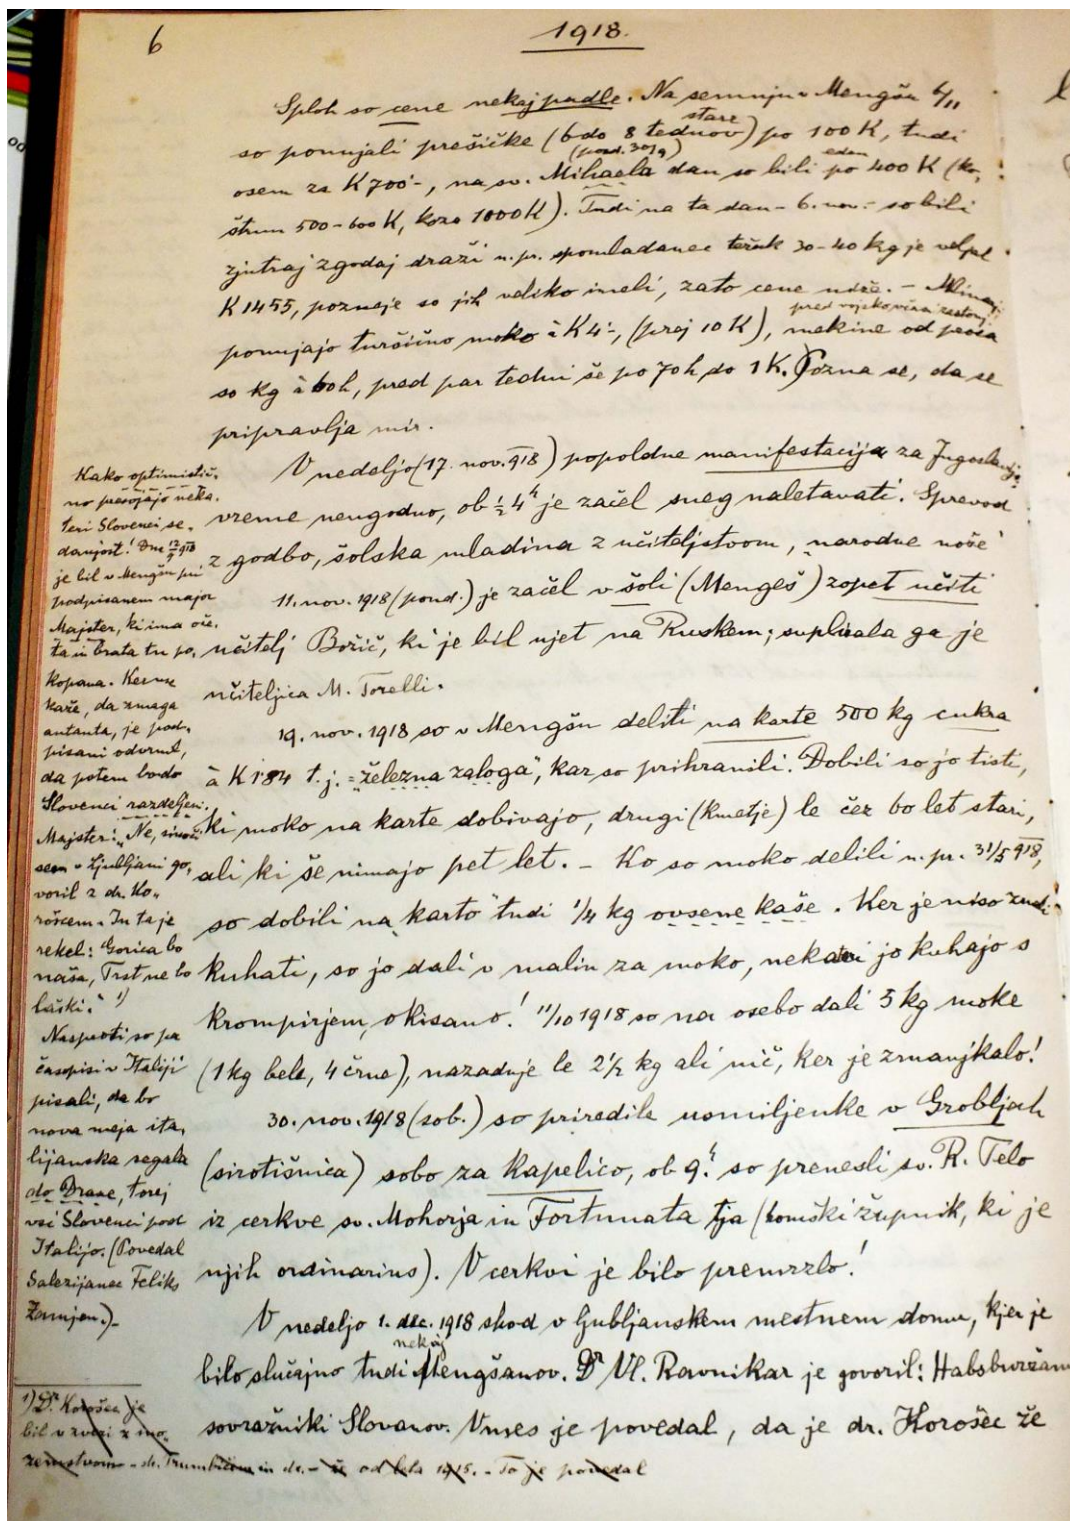 6
1918.
Sploh so cene nekaj padle. Na semnju v Mengšu 6/11
stare
so ponujali prešičke (6 do 8 tednov) po 100 K, tudi
(pond. 30/9) eden
osem za K 700'-, na sv. Mihaela dan so bili po 400 K (ko-
štrun 500-600 K, koza 1000 K). Tudi na ta dan - 6. nov. - so bili
zjutraj zgodaj draži n. pr. spomladanec težak 30-40 kg je veljal
K 1455, pozneje so jih veliko imeli, zato cene niže. - Mlinarji
pred vojsko včasi zastonj
ponujajo turšično moko à K 4'-, (prej 10 K), mekine od prosa
so kg à 60 h, pred par tedni še po 70 h do 1 K.) Pozna se, da se
pripravlja mir.
V nedeljo (17. nov. 918) popoldne manifestacija za Jugoslavijo
vreme neugodno, ob ½ 4h je začel sneg naletavati. Sprevod
z godbo, šolska mladina z učiteljstvom, narodne noše
11. nov. 1918 (pond.) je začel v šoli (Mengeš) zopet učiti
učitelj Božič, ki je bil ujet na Ruskem; suplirala ga je
učiteljica M. Torelli.
19. nov. 1918 so v Mengšu delili na karte 500 kg cukra
à K 1'84 t. j. "železna zaloga", kar so prihranili. Dobili so jo tisti,
ki moko na karte dobivajo, drugi (kmetje) le čez 60 let stari,
ali ki še nimajo pet let. - Ko so moko delili n. pr. 31/5 918,
so dobili na "karto" tudi ¼ kg ovsene kaše. Ker je niso znali
kuhati, so jo dali v malin za moko, nekateri jo kuhajo s
krompirjem, okisano! 11/10 1918 so na osebo dali 5 kg moke
(1 kg bele, 4 črne), nazadnje le 2½ kg ali nič, ker je zmanjkalo!
30. nov. 1918 (sob.) so priredile usmiljenke v Grobljah
(sirotišnica) sobo za kapelico, ob 9h. so prenesli sv. R. Telo
iz cerkve sv. Mohorja in Fortunata tja (homški župnik, ki je
njih ordinarius). V cerkvi je bilo premrzlo!
V nedeljo 1. dec. 1918 shod v ljubljanskem mestnem domu, kjer je
nekaj
bilo slučajno tudi Mengšanov. Dr Vl. Ravnikar je govoril: Habsburžani
sovražniki Slovanov. Vmes je povedal, da je dr. Korošec že
Kako optimistič-
no presojajo neka-
teri Slovenci se-
danjost! Dne 12/9 918
je bil v Mengšu pri
podpisanem major
Majster, ki ima oče-
ta in brata tu po-
kopana. Ker vse
kaže, da zmaga
antanta, je pod-
pisani odvrnil,
da potem bodo
Slovenci razdeljeni.
Majster: "Ne, sinoči
sem v Ljubljani go-
voril z dr. Ko-
rošcem. In ta je
rekel: Gorica bo
naša, Trst ne bo
laški." 1)
Nasproti so pa
časopisi v Italiji
pisali, da bo
nova meja ita-
lijanska segala
do Drave, torej
vsi Slovenci pod
Italijo. (Povedal
Salezijanec Feliks
Žamjen.)-
1) Dr. Korošec je
bil v zvezi z ino-
zemstvom - dr. Trumbićem in dr. - že od leta 1915. - To je povedal